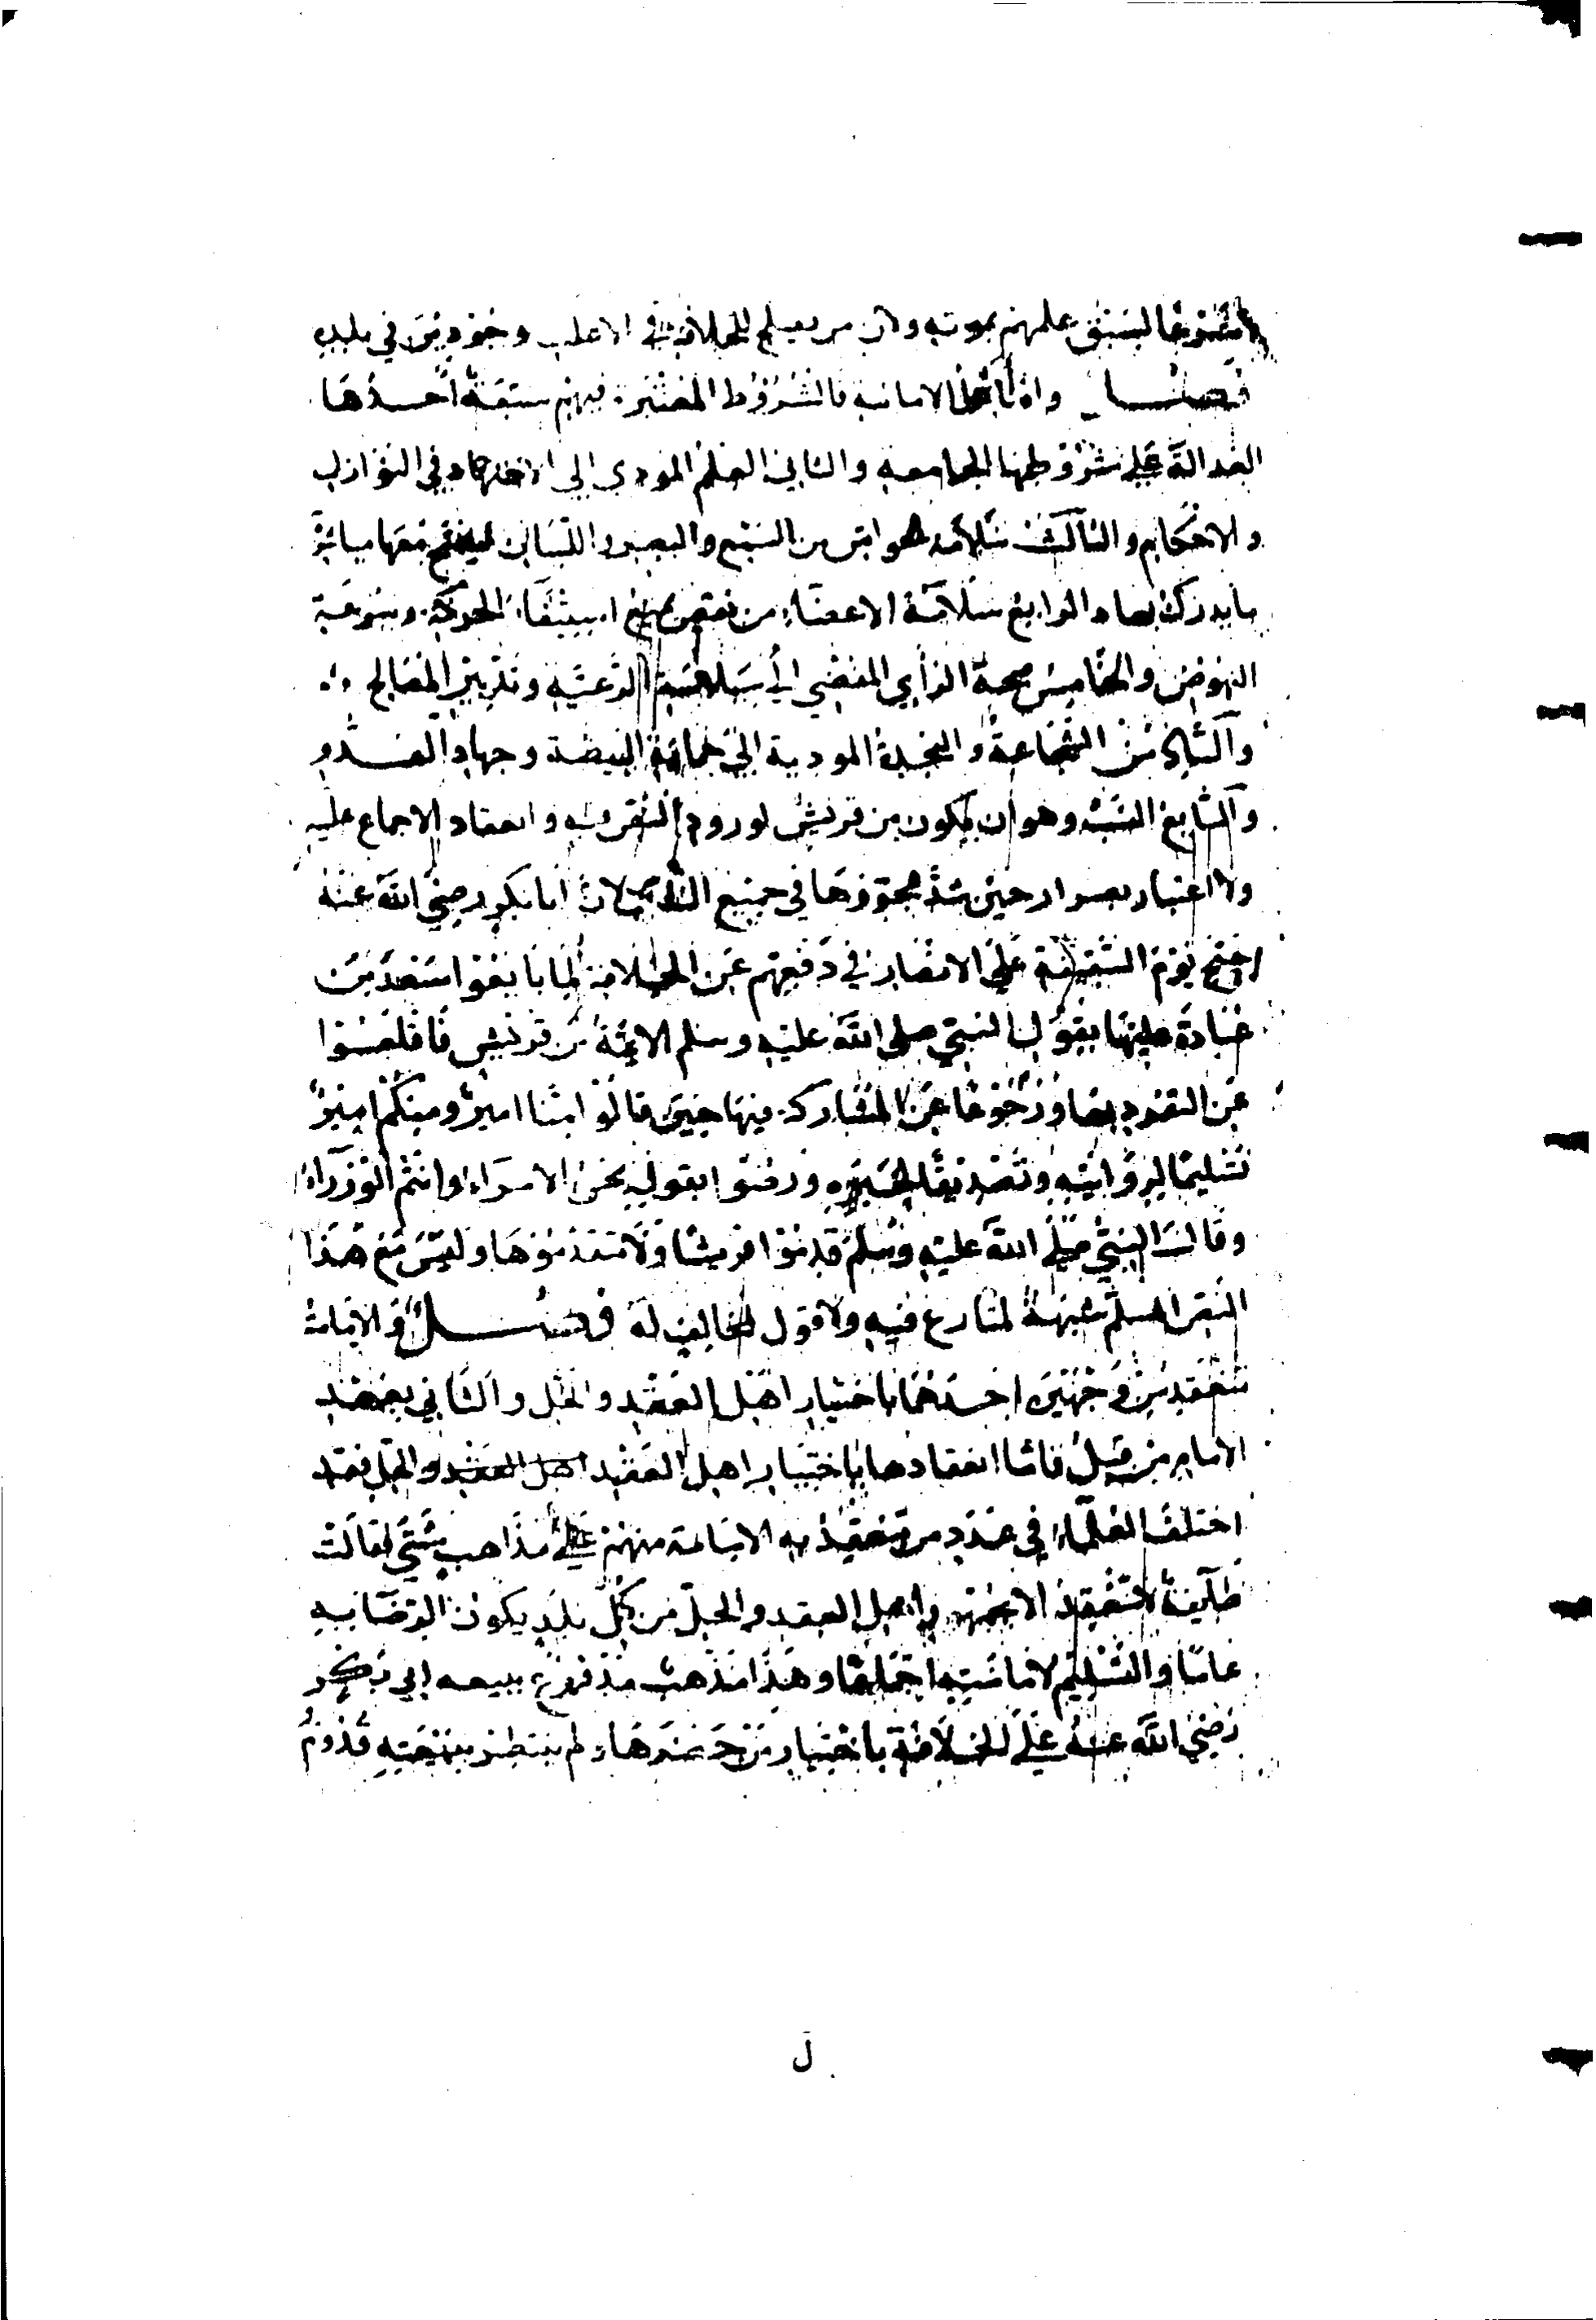 لا شرعا لسبق علمهم بموته ولان من يصلح للخلافة في الاغلب موجودين في بلده
فصل واما اهل الامامة فالشروط المعتبرة فيهم سبعة احدها
العدالة على شروطها الجامعه والثاني العلم المودي الى الاجتهاد في النوازل
والاحكام والثالث سلامه الحواس من السمع والبصر واللسان ليصح معها مباشرة
ما يدرك بها والرابع سلامة الاعضاء من نقص يمنع استيفاء الحركة وسرعة
النهوض والخامس صحة الرأي المفضي الى سياسة الرعيه وتدبير المصالح
والسادس الشجاعة والنجدة المودية الى حماية البيضة وجهاد العدو
والسابع النسب وهو ان يكون من قريش لورود النص فيه وانعقاد الاجماع عليه
ولا اعتبار بضرار حين شذ فجوزها في جميع الناس لان ابا بكر رضي الله عنه
احتج يوم السقيفة على الانصار في دفعهم عن الخلافة لما بايعوا سعد بن
عبادة عليها بقول النبي صلى الله عليه وسلم الائمة من قريش فاقلعوا
عن التفرد بها ورجوعا عن المشاركة فيها حين قالوا منا امير ومنكم امير
تسليما لروايته وتصديقا لخبره ورضوا بقوله نحن الامراء وانتم الوزراء
وقال النبي صلى الله عليه وسلم قدموا قريشا ولا تتقدموها وليس مع هذا
النص المسلم شبهة لمنازع فيه ولا قول لمخالف له فصل والامامة
تنعقد من وجهين احدهما باختيار اهل العقد والحل والثاني بعهد
الامام من قبل فاما انعقادها باختيار اهل العقد اهل العقد والحل فقد
اختلف العلماء في عدد من تنعقد به الامامة منهم على مذاهب شتى فقالت
طائفة لا تنعقد الا بجمهور اهل العقد والحل من كل بلد يكون الرضا به
عاما والتسليم لامامته اجماعا وهذا مذهب مدفوع ببيعه ابي بكر
رضي الله عنه على الخلافة باختيار من حضرها ولم ينتظر ببيعته قدوم
ل